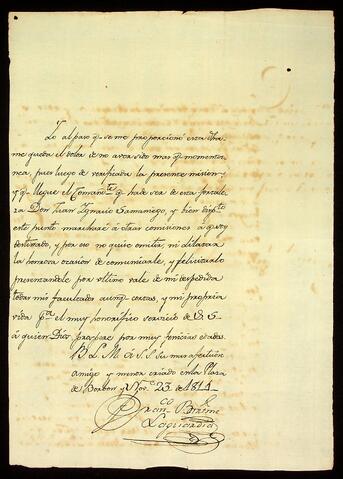 Yo al paso q.e se me proporcionó esta
me queda el dolor de no aver sido mas q.e momenta
nea, pues luego de verificada la presente mision
y q.e llegue el Comand.te q.e ha de ser de esta fortale
za Don Juan Ygnacio Samaniego, y bien
este punto marcharé a otras comisiones a q.e soy
destinado, y por eso no quise omitir, ni dilatar
la honrosa ocacion de comunicarle, y felicitarlo
presentandole por ultimo vale de mi despedida
todas mis facultades aunq.e cortas, y mi propria
vida p.a el muy honorifico servicio de V.S.
á quien Dios prospere por muy felicias edades.
B. L. M. a V.S. Su mas afecto
amigo y menor criado en la Plaza
de Borbon y Nov.e 23. de 1814
Fran.co
Laguardia